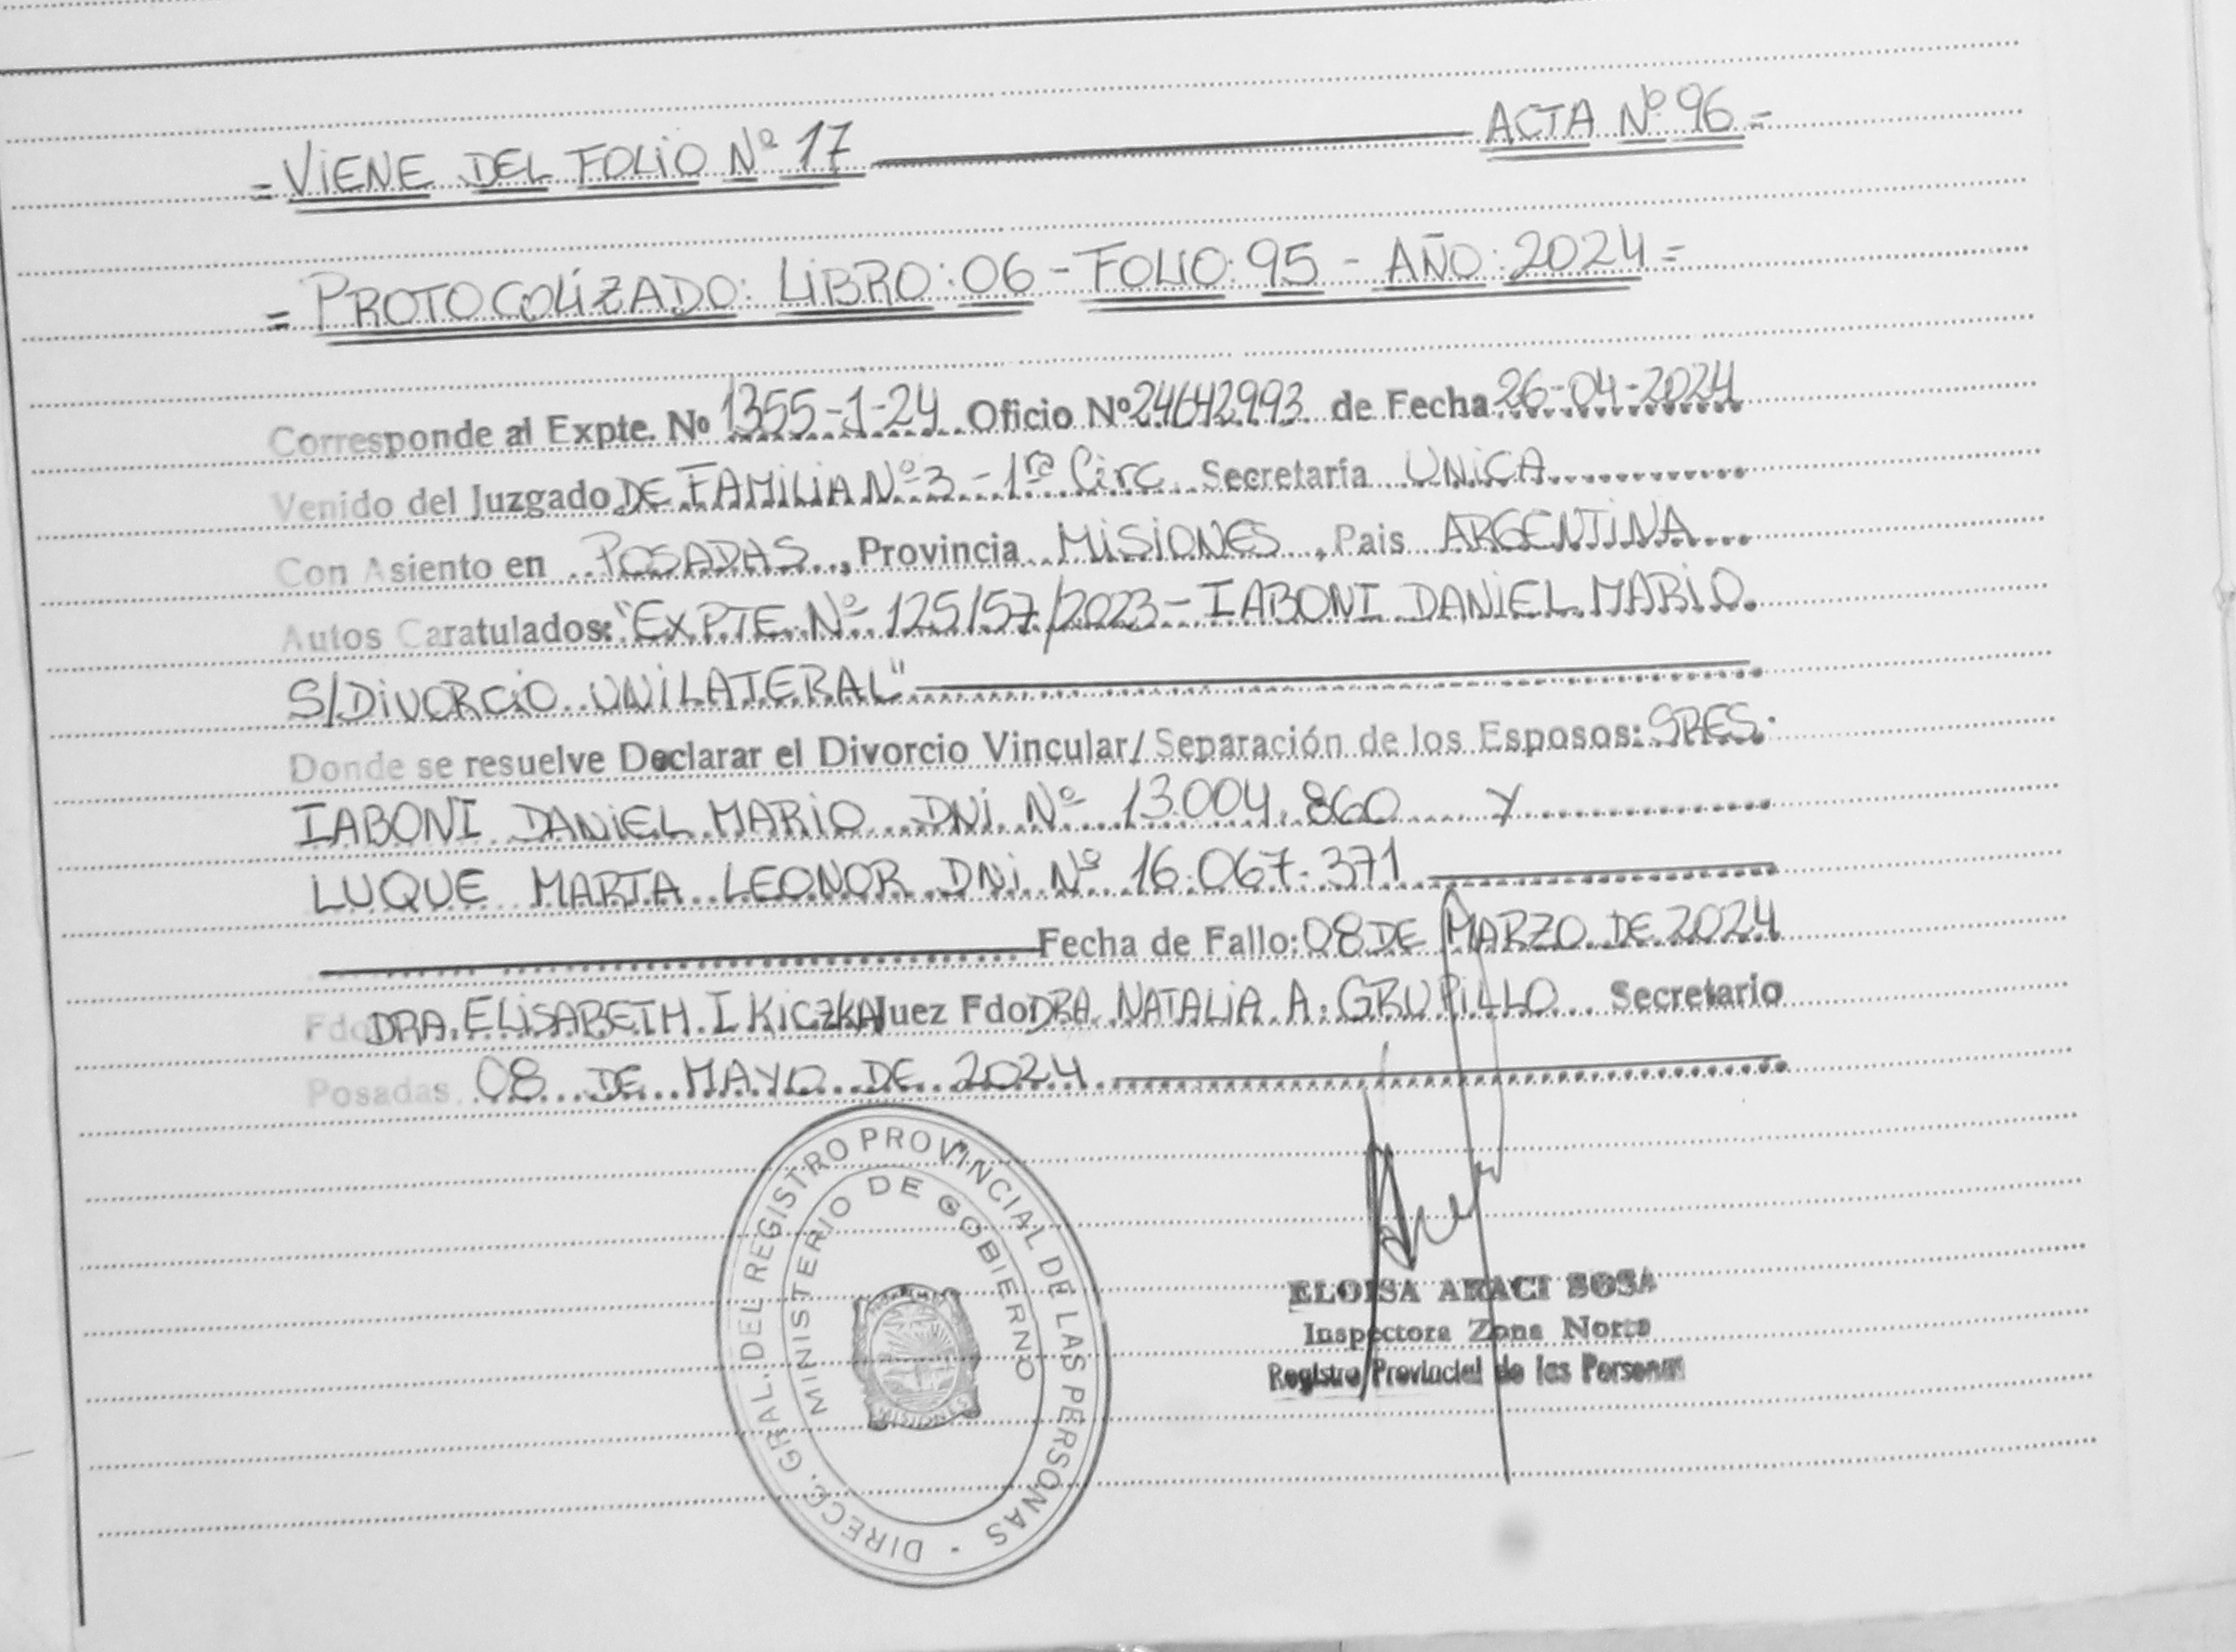 = VIENE DEL FOLIO Nº 17 ACTA Nº 96 =
= PROTOCOLIZADO: LIBRO: 06 - FOLIO: 95 - AÑO: 2024 =
Corresponde al Expte. Nº 1355-1-24 Oficio Nº 24642993 de Fecha 26-04-2024
Venido del Juzgado DE FAMILIA Nº 3 - 1ra Circ. Secretaría UNICA
Con Asiento en POSADAS, Provincia MISIONES, Pais ARGENTINA
Autos Caratulados: "EXPTE Nº 125157/2023 - IABONI DANIEL MARIO
S/DIVORCIO UNILATERAL"
Donde se resuelve Declarar el Divorcio Vincular/ Separación de los Esposos: SRES.
IABONI DANIEL MARIO DNI Nº 13.004.860 Y
LUQUE MARTA LEONOR DNI Nº 16.067.371
Fecha de Fallo: 08 DE MARZO DE 2024
Fdo DRA. ELISABETH I KICZKA Juez Fdo: DRA NATALIA A. GRUPILLO Secretario
Posadas, 08 DE MAYO DE 2024
DIRECC. GRAL. DEL REGISTRO PROVINCIAL DE LAS PERSONAS
MINISTERIO DE GOBIERNO
MISIONES
ELOISA ARACI SOSA
Inspectora Zona Norte
Registro Provincial de las Personas